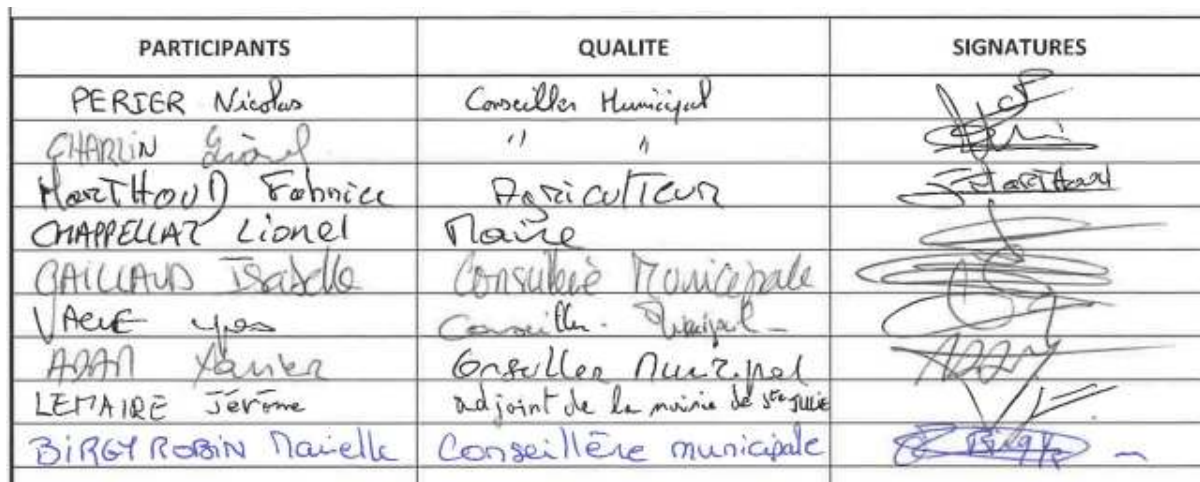 PARTICIPANTS QUALITE SIGNATURES
PERIER Nicolas Conseiller Municipal
CHARLIN Lionel " "
MARTHOUD Fabrice Agriculteur
CHAPPELLAZ Lionel Maire
GAILLAUD Isabelle Conseillère Municipale
Conseiller Municipal
ADAM Xavier Conseiller Municipal
LEMAIRE Jérôme adjoint de la mairie de Ste JULIE
BIRGY ROBIN Marielle Conseillère municipale